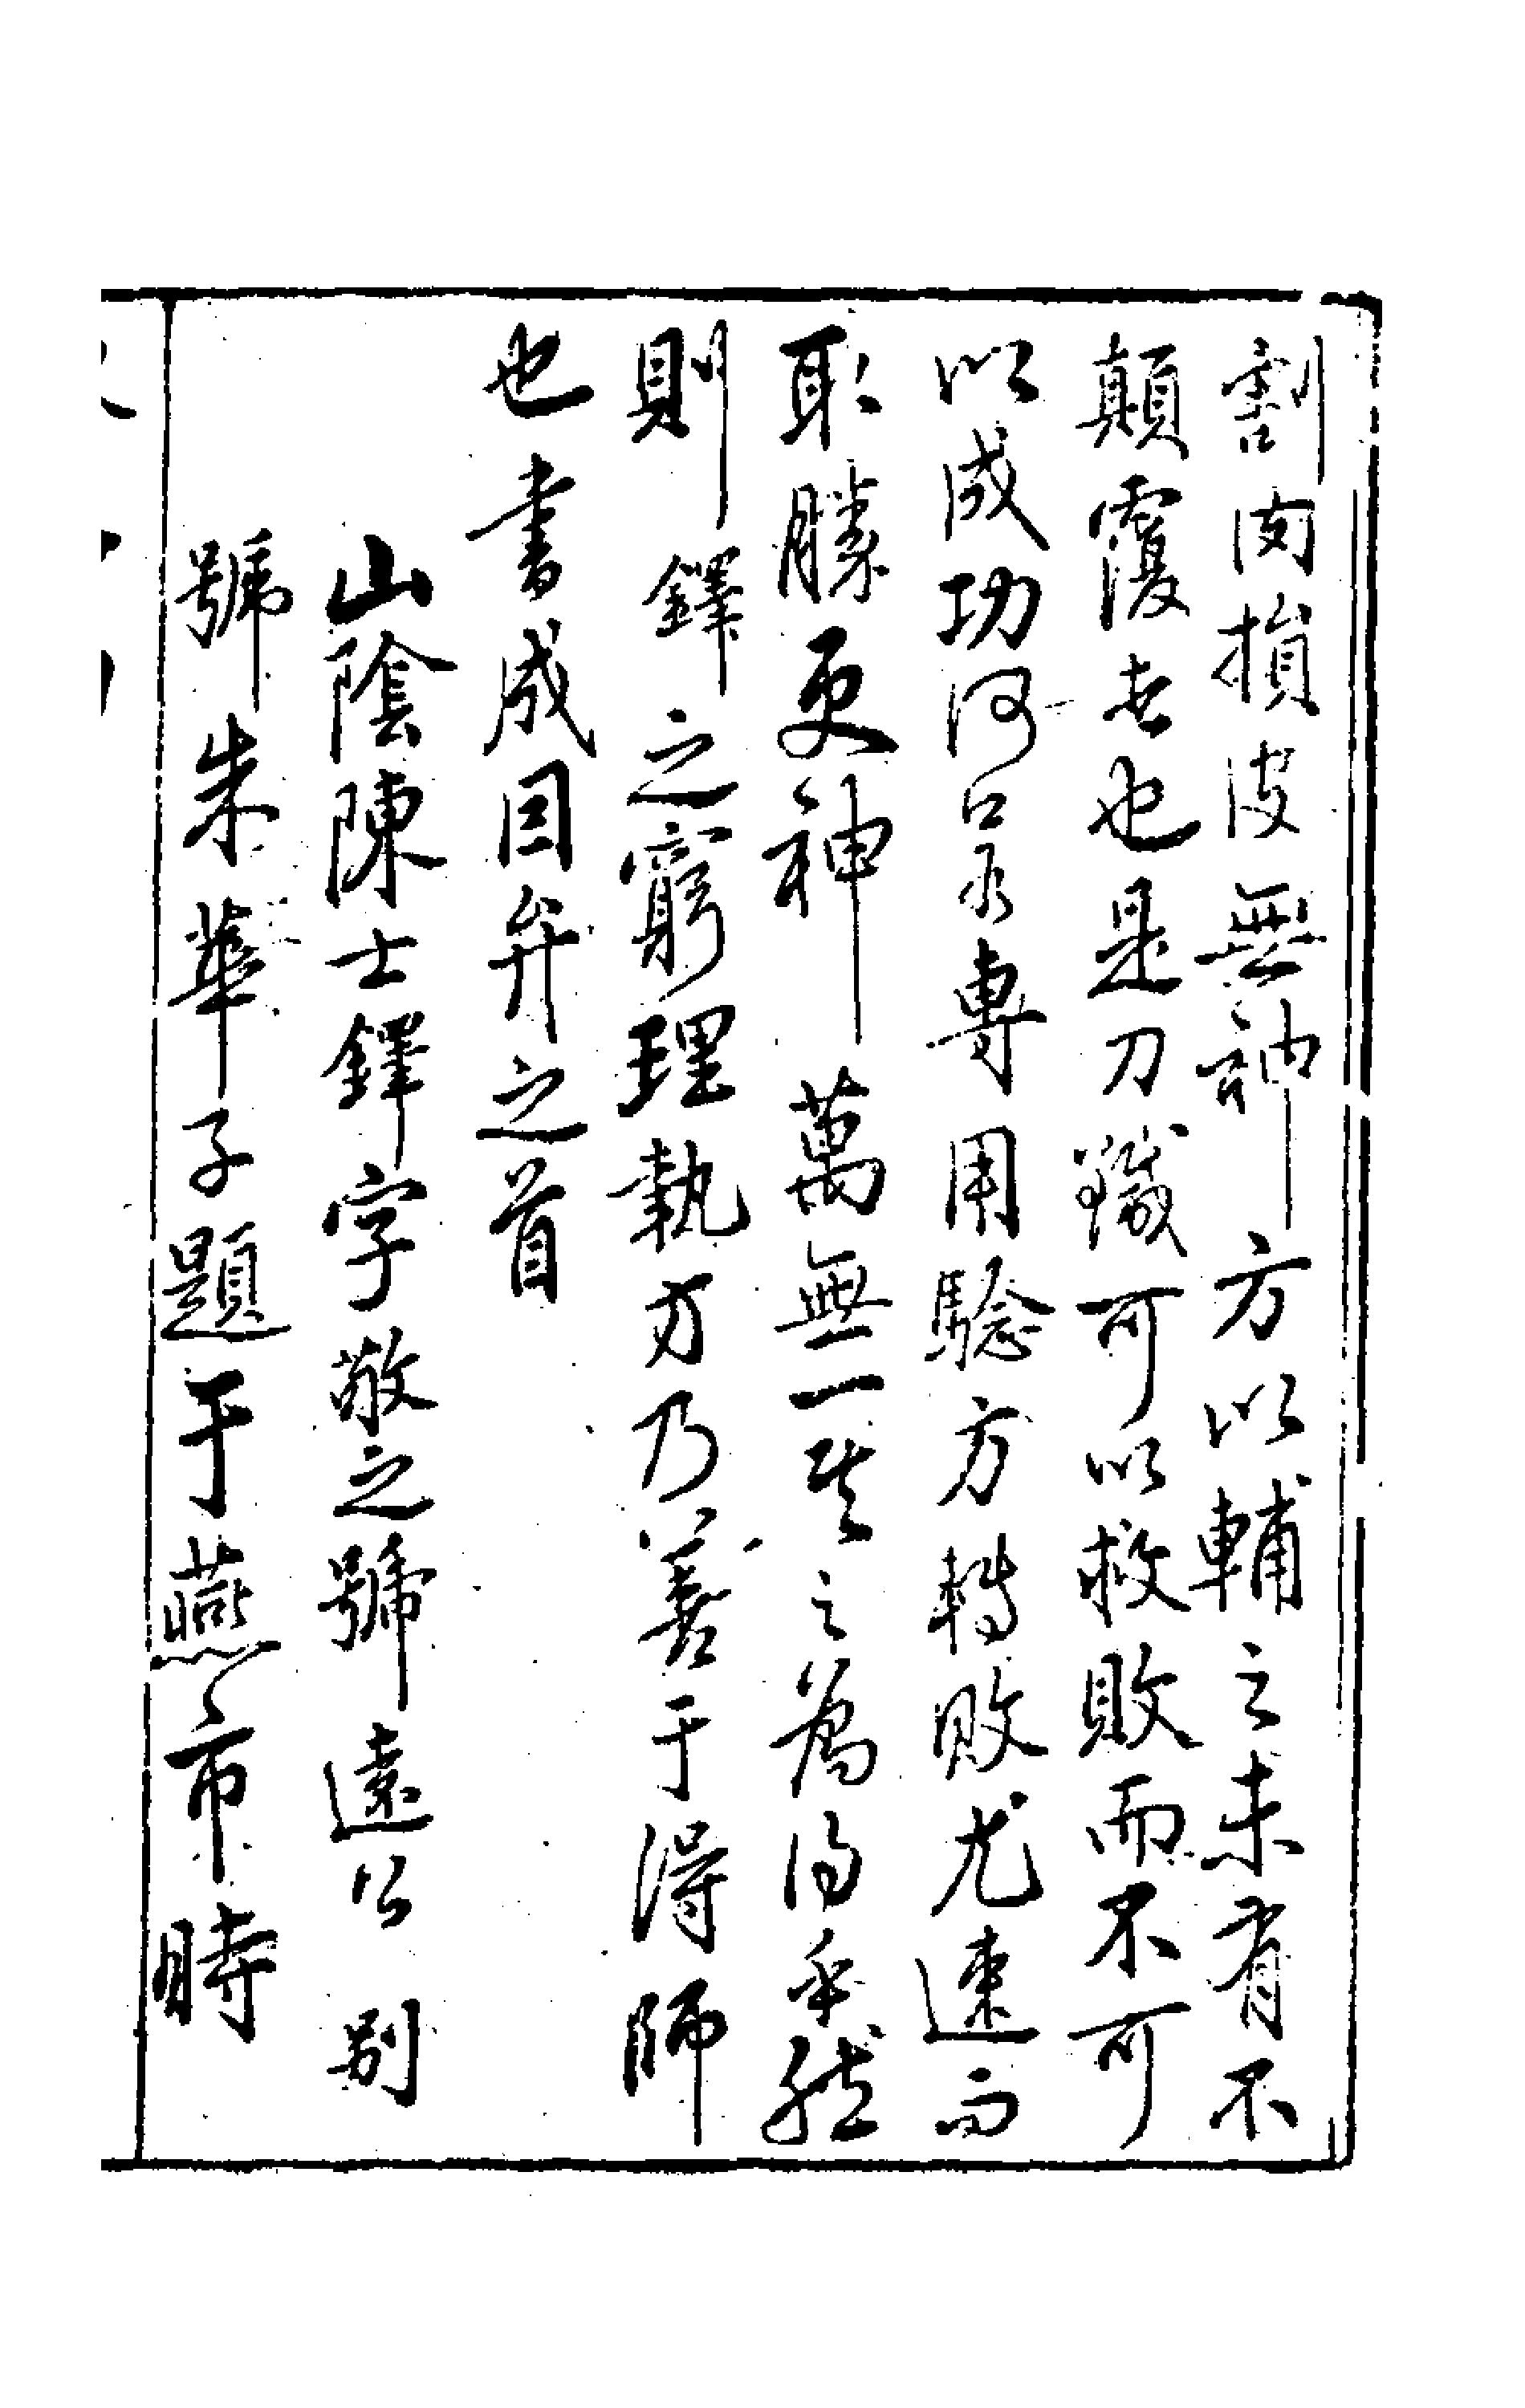 割肉損皮無神方以輔之未有不
顛覆者也是刀鍼可以救敗而不可
以成功何若專用驗方轉敗尤速而
取勝更神萬無一失之為得乎然
則鐸之窮理執方乃善于得師
也書成因弁之首
山陰陳士鐸字敬之號遠公別
號朱華子題于燕市時